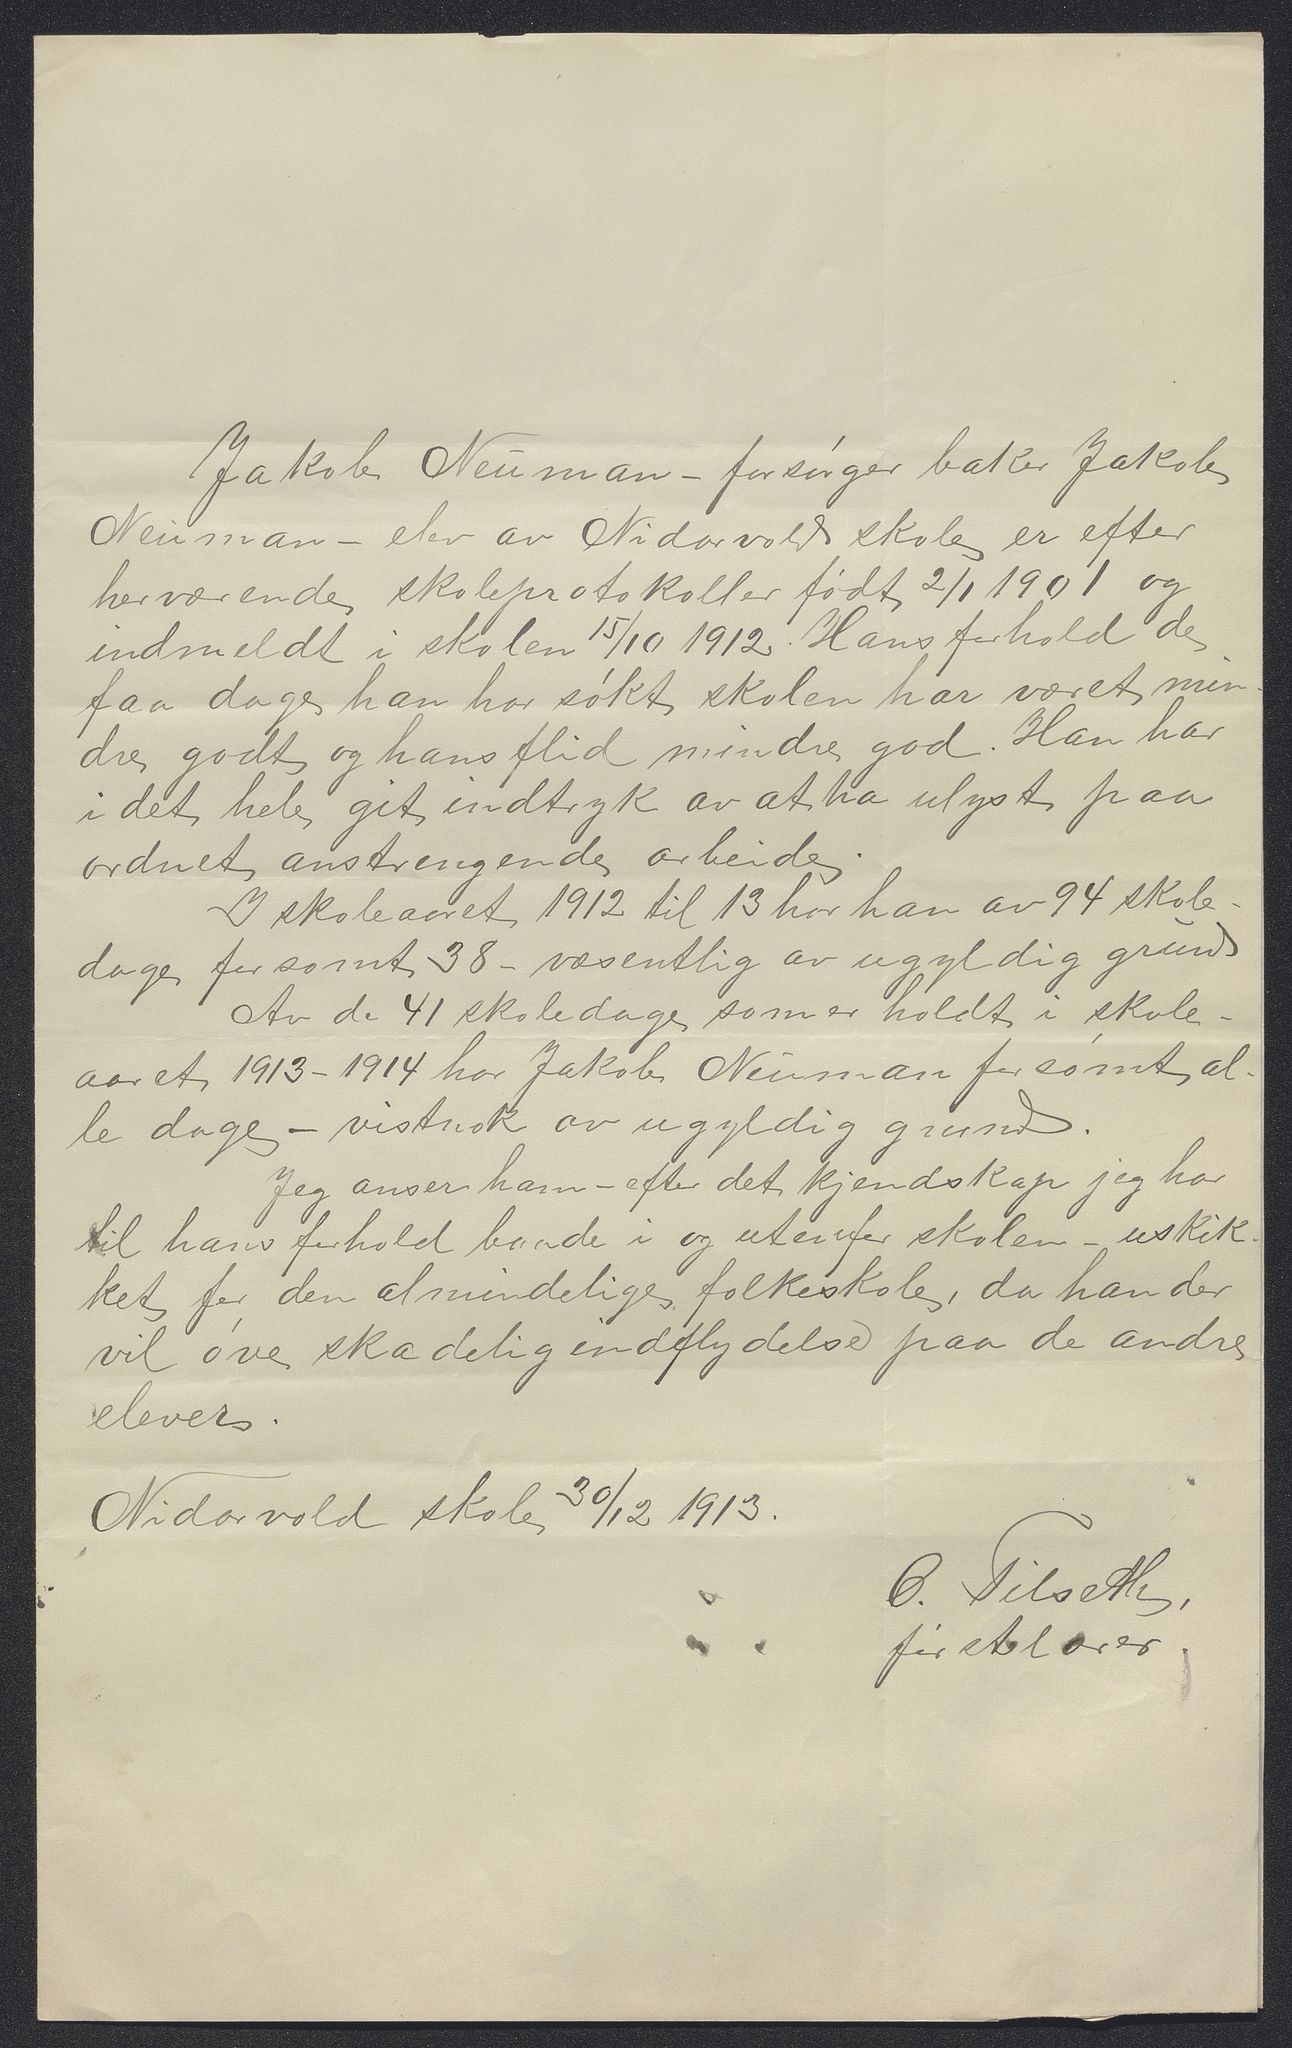 Jakob Neuman – forsørger baker Jakob
Neuman – elev av Nidarvold skole er efter
herværende skoleprotokoller født 2/1 1901 og
indmeldt i skolen 15/10 1912. Hans forhold de
faa dage han har søkt skolen har været min-
dre godt og hans flid mindre god. Han har
i det hele git indtryk av at ha ulyst paa
ordnet anstrengende arbeide.
I skoleaaret 1912 til 13 har han av 94 skole-
dage forsømt 38 – væsentlig av ugyldig grund
Av de 41 skoledage som er holdt i skole-
aaret 1913–1914 har Jakob Neuman forsømt al-
le dage – vistnok av ugyldig grund.
Jeg anser ham – efter det kjendskap jeg har
til hans forhold baade i og utenfor skolen – uskik-
ket for den almindelige folkeskole, da han der
vil øve skadelig indflydelse paa de andre
elever.
Nidarvold skole 30/12 1913.
O. Tilseth,
førstelærer.